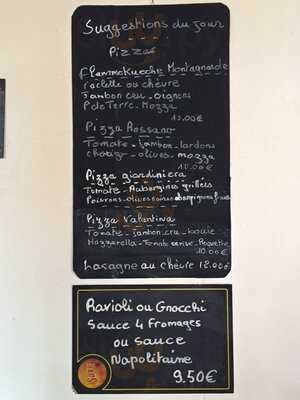 Suggestions du jour
Pizzas
Flammekueche Montagnarde
raclette ou chèvre
Jambon cru - oignons
P de Terre - Mozza
Pizza Rossano
Tomate - jambon - lardons
chorizo - olives - mozza
10.00€
Pizza giardiniera
Tomate - Aubergines grillées
Poivrons - olives noires champignons frais
Pizza Valentina
Tomate - jambon cru - boule
Mozzarella - Tomate cerise - Roquette
10.00€
Lasagne au chèvre 12.00€
Ravioli ou Gnocchi
Sauce 4 Fromages
ou sauce
Napolitaine
9.50€